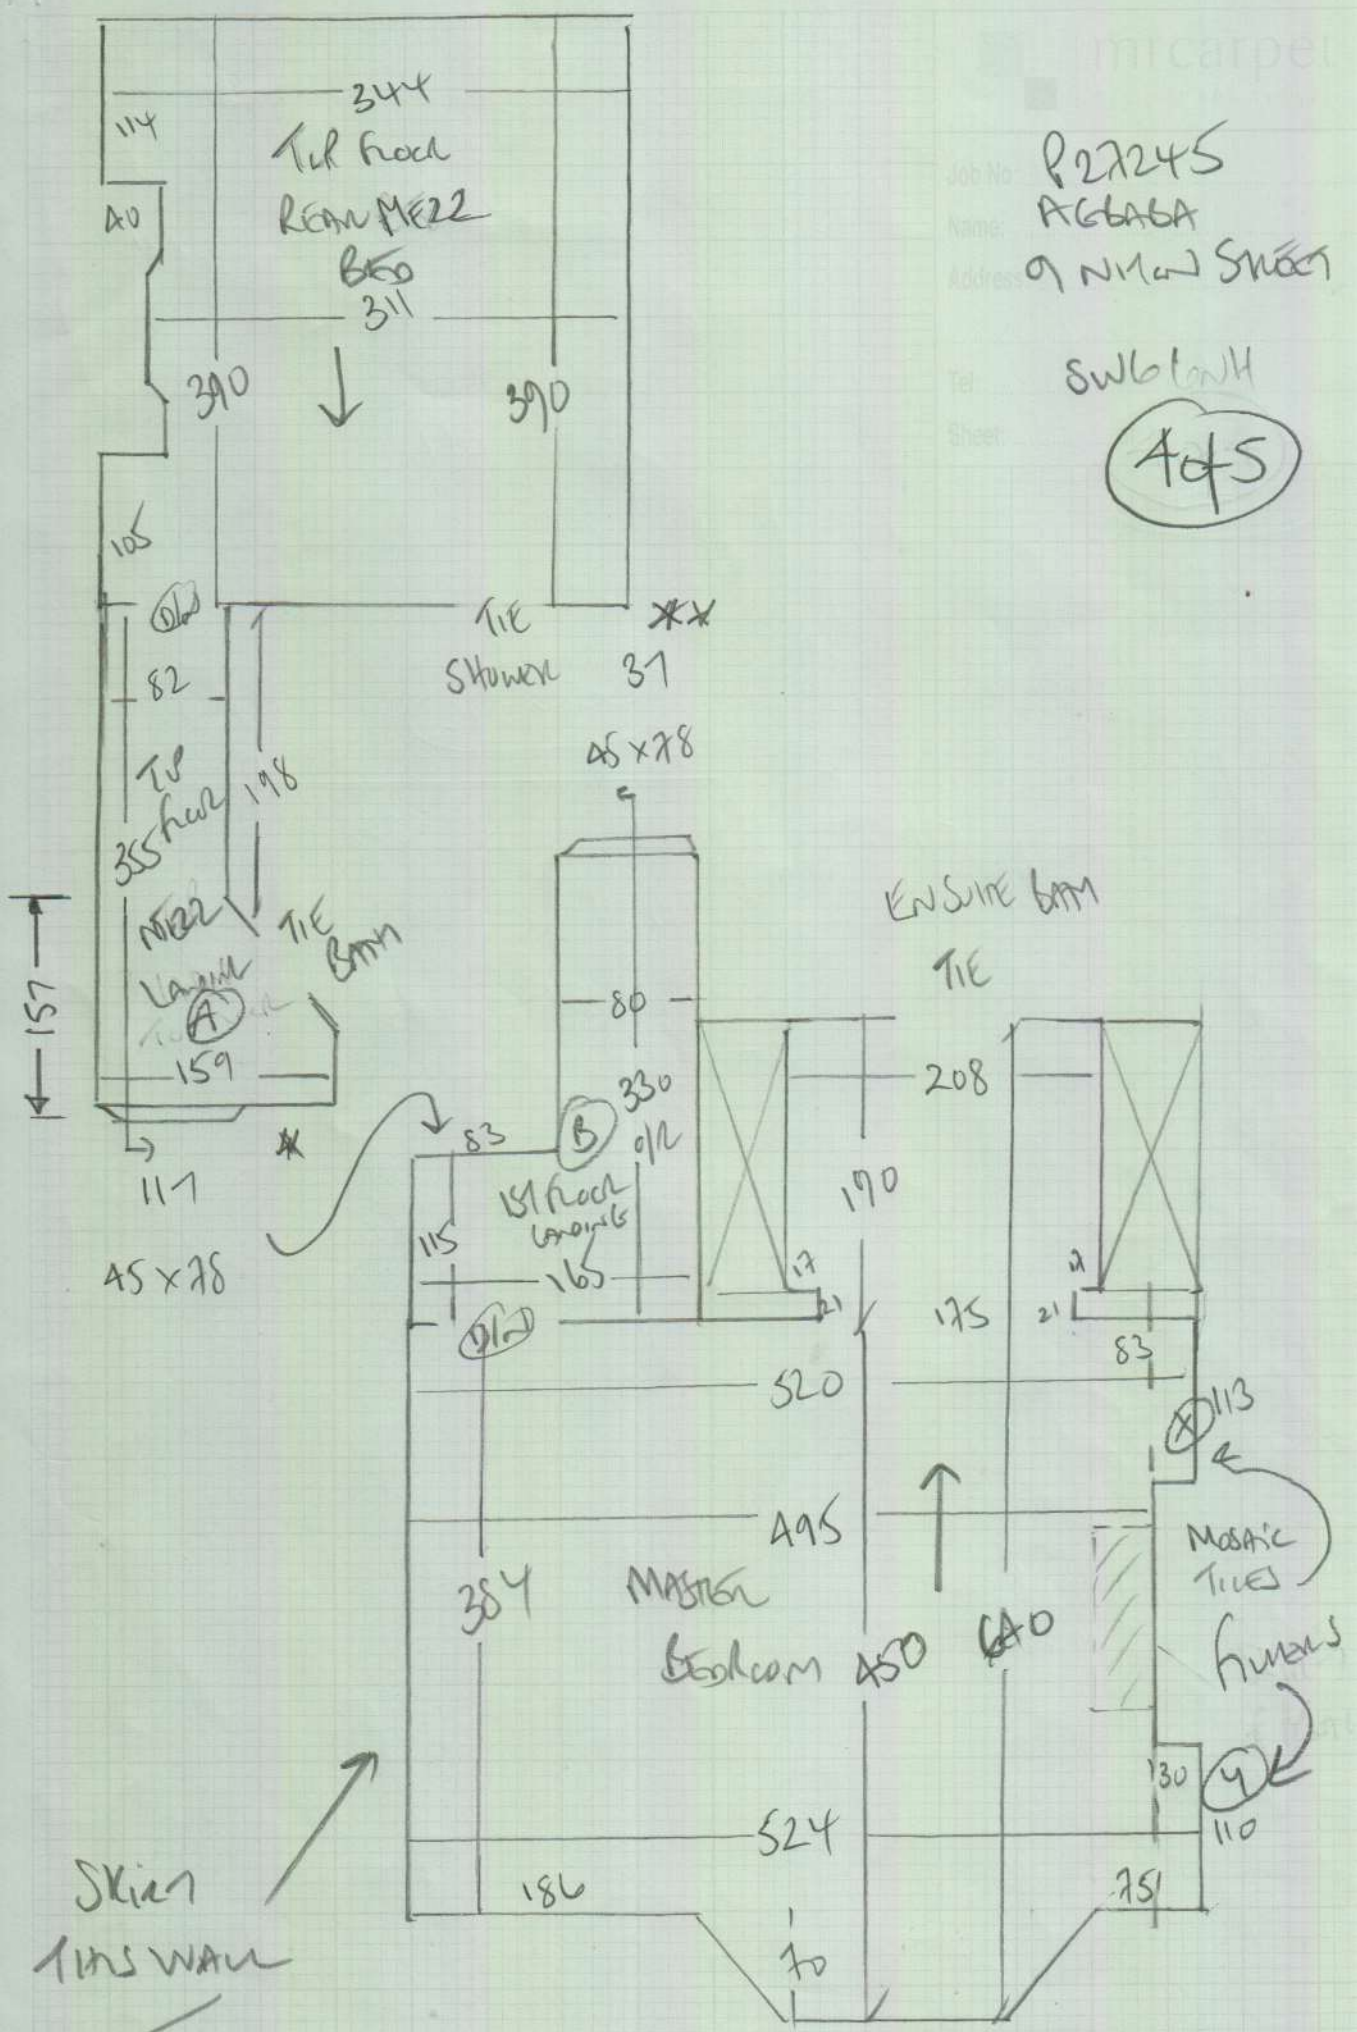 mrcarpet
Job No: P27245
Name: AGBABA
Address: 9 NIION STREET
Tel: SW6 6NH
Sheet: 4 of 5
344
114
TOP FLOOR
REAR MEZZ
BED
40
311
390
390
105
D/W
TIE
**
SHOWER
37
82
45 x 78
TOP
FLOOR
198
355
MEZZ
LANDING
TIE
BATH
157
A
159
117
*
45 x 78
ENSUITE BATH
TIE
80
330
O/R
208
83
B
1ST FLOOR
LANDING
115
165
190
17
21
175
17
21
D/W
83
520
X 113
495
MOSAIC
TILES
384
MASTER
BEDROOM
450
640
30
Y
110
524
186
75
70
SKIRT
THIS WALL